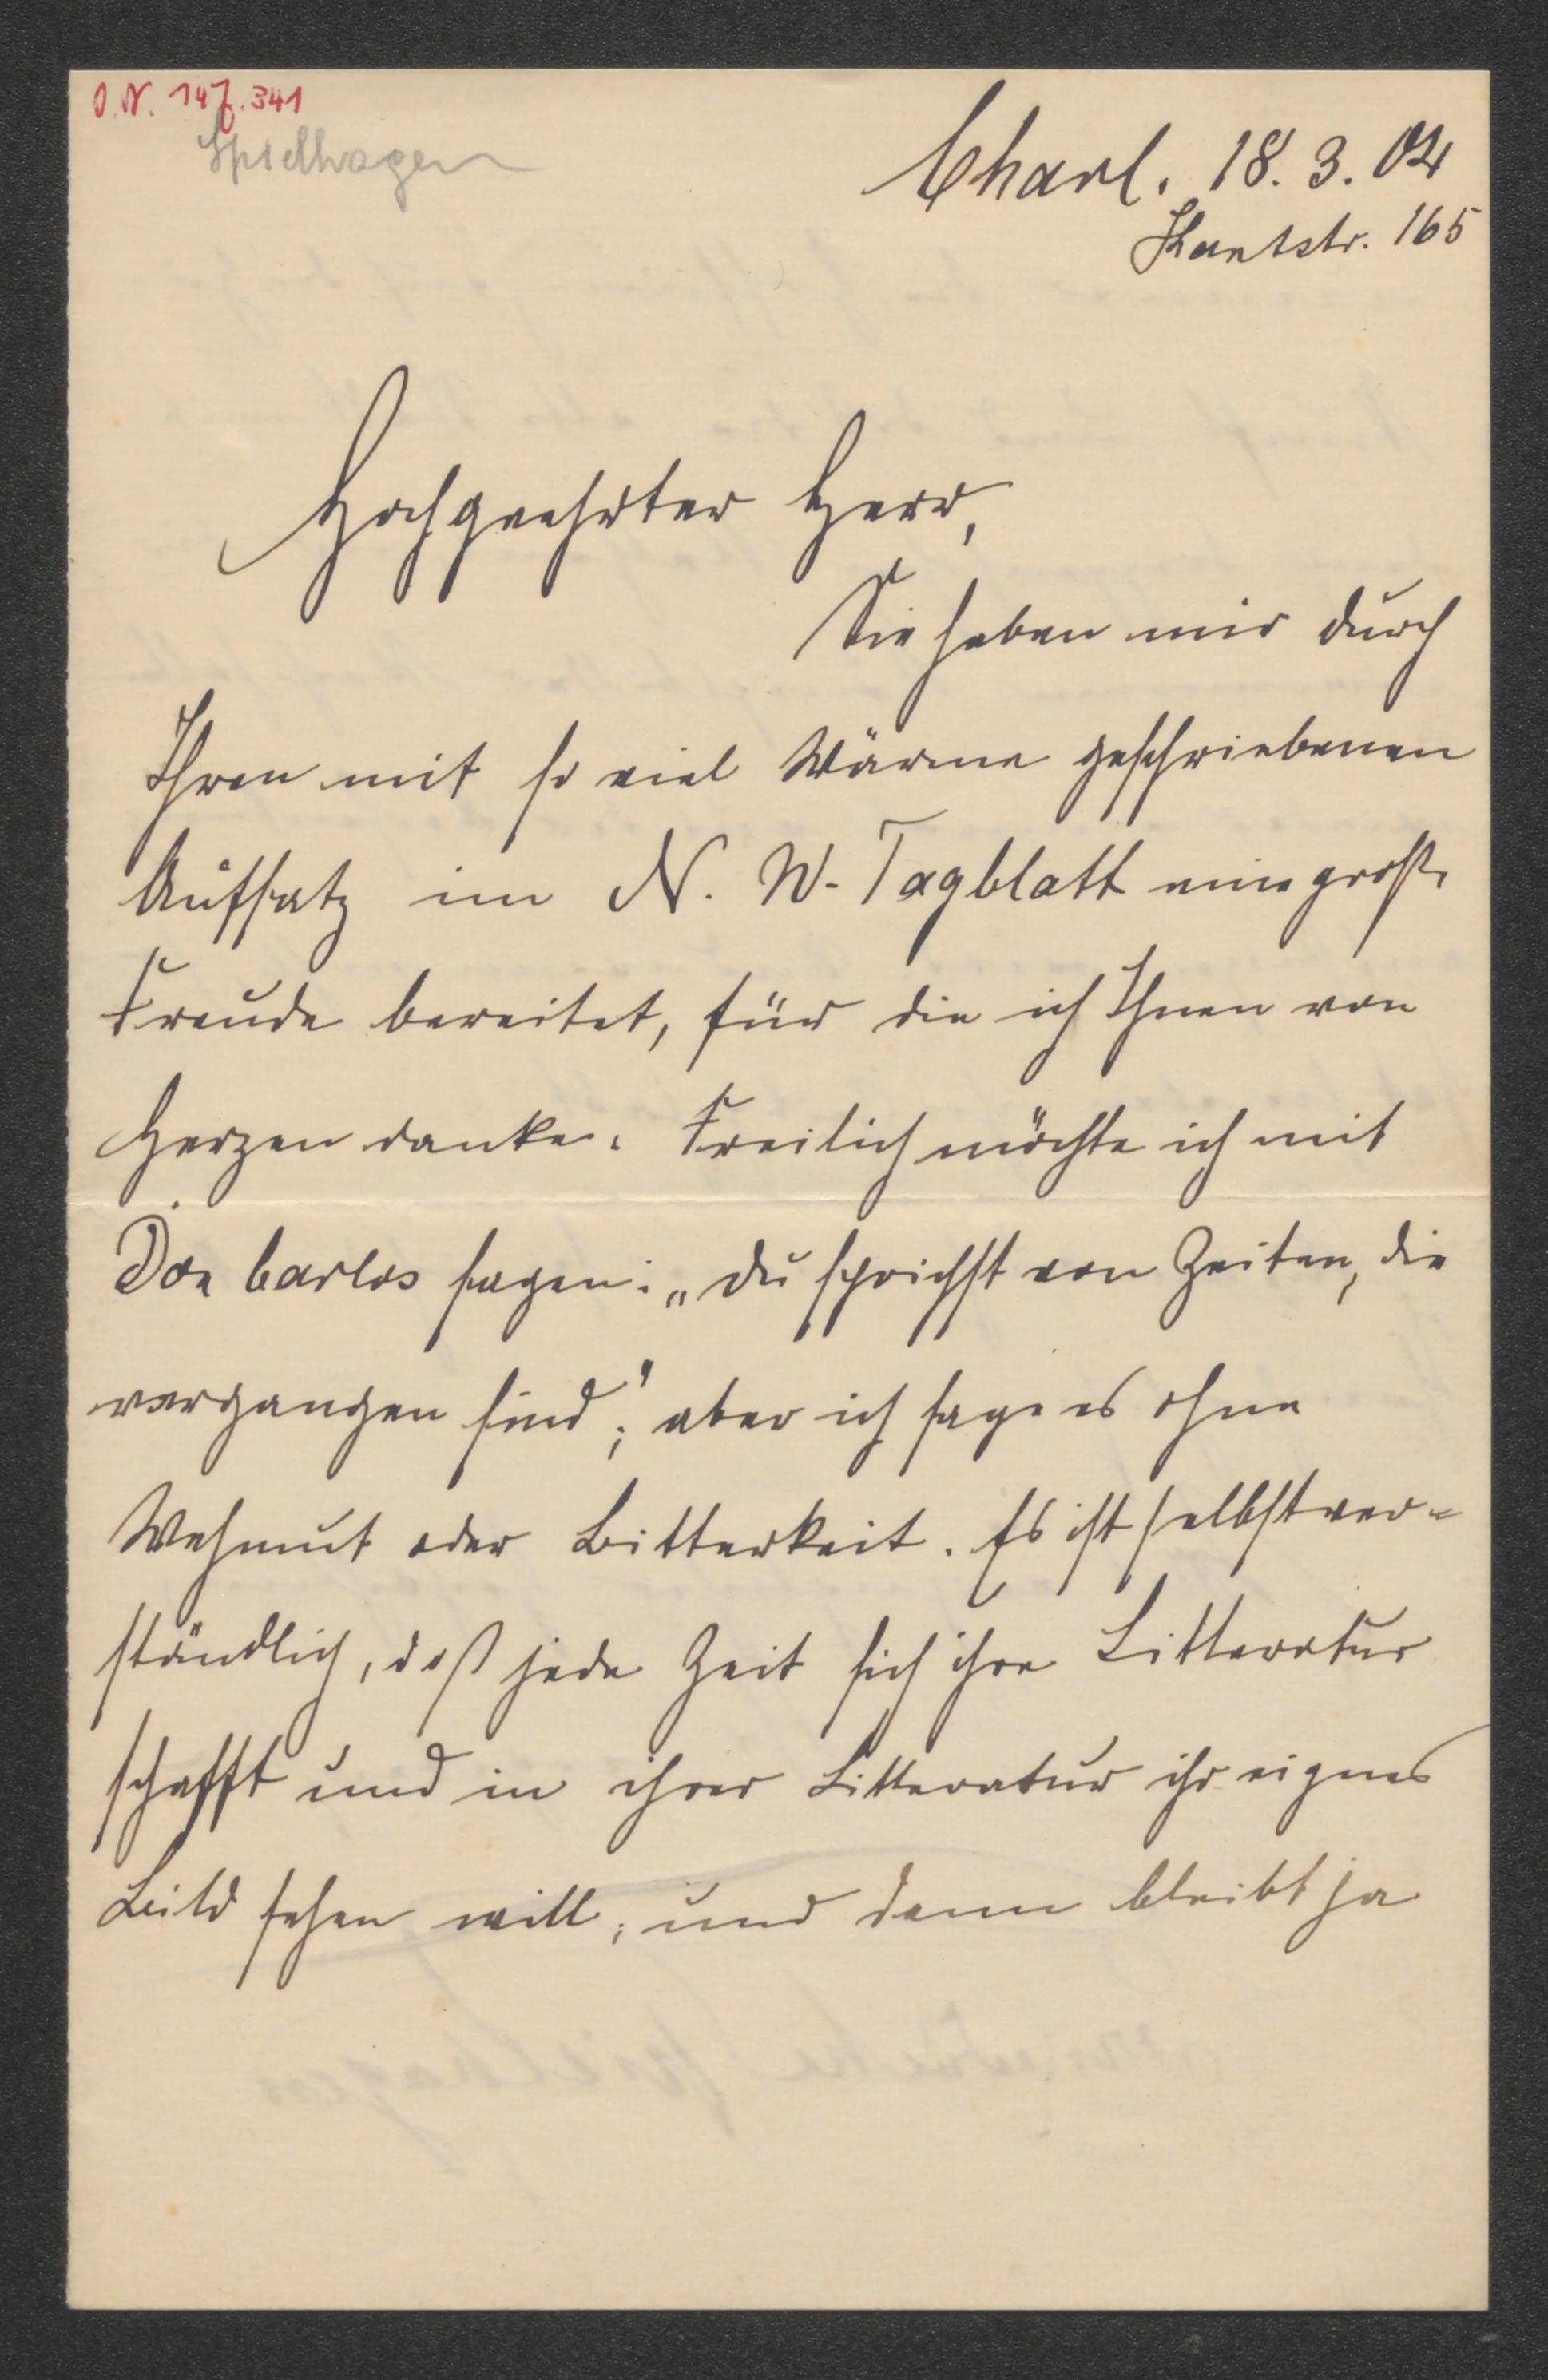 I.N. 147.341
Spielhagen
Charl. 18. 3. 04
Kantstr. 165
Hochgeehrter Herr,
Sie haben mir durch
Ihren mit so viel Wärme geschriebenen
Aufsatz im N. W. Tagblatt eine große
Freude bereitet, für die ich Ihnen von
Herzen danke. Freilich möchte ich mit
Don Carlos sagen: „Du sprichst von Zeiten, die
vergangen sind“; aber ich sage es ohne
Wehmut oder Bitterkeit. Es ist selbstver-
ständlich, daß jede Zeit sich ihre Litteratur
schafft und in ihrer Litteratur ihr eignes
Bild sehen will; und dann bleibt ja